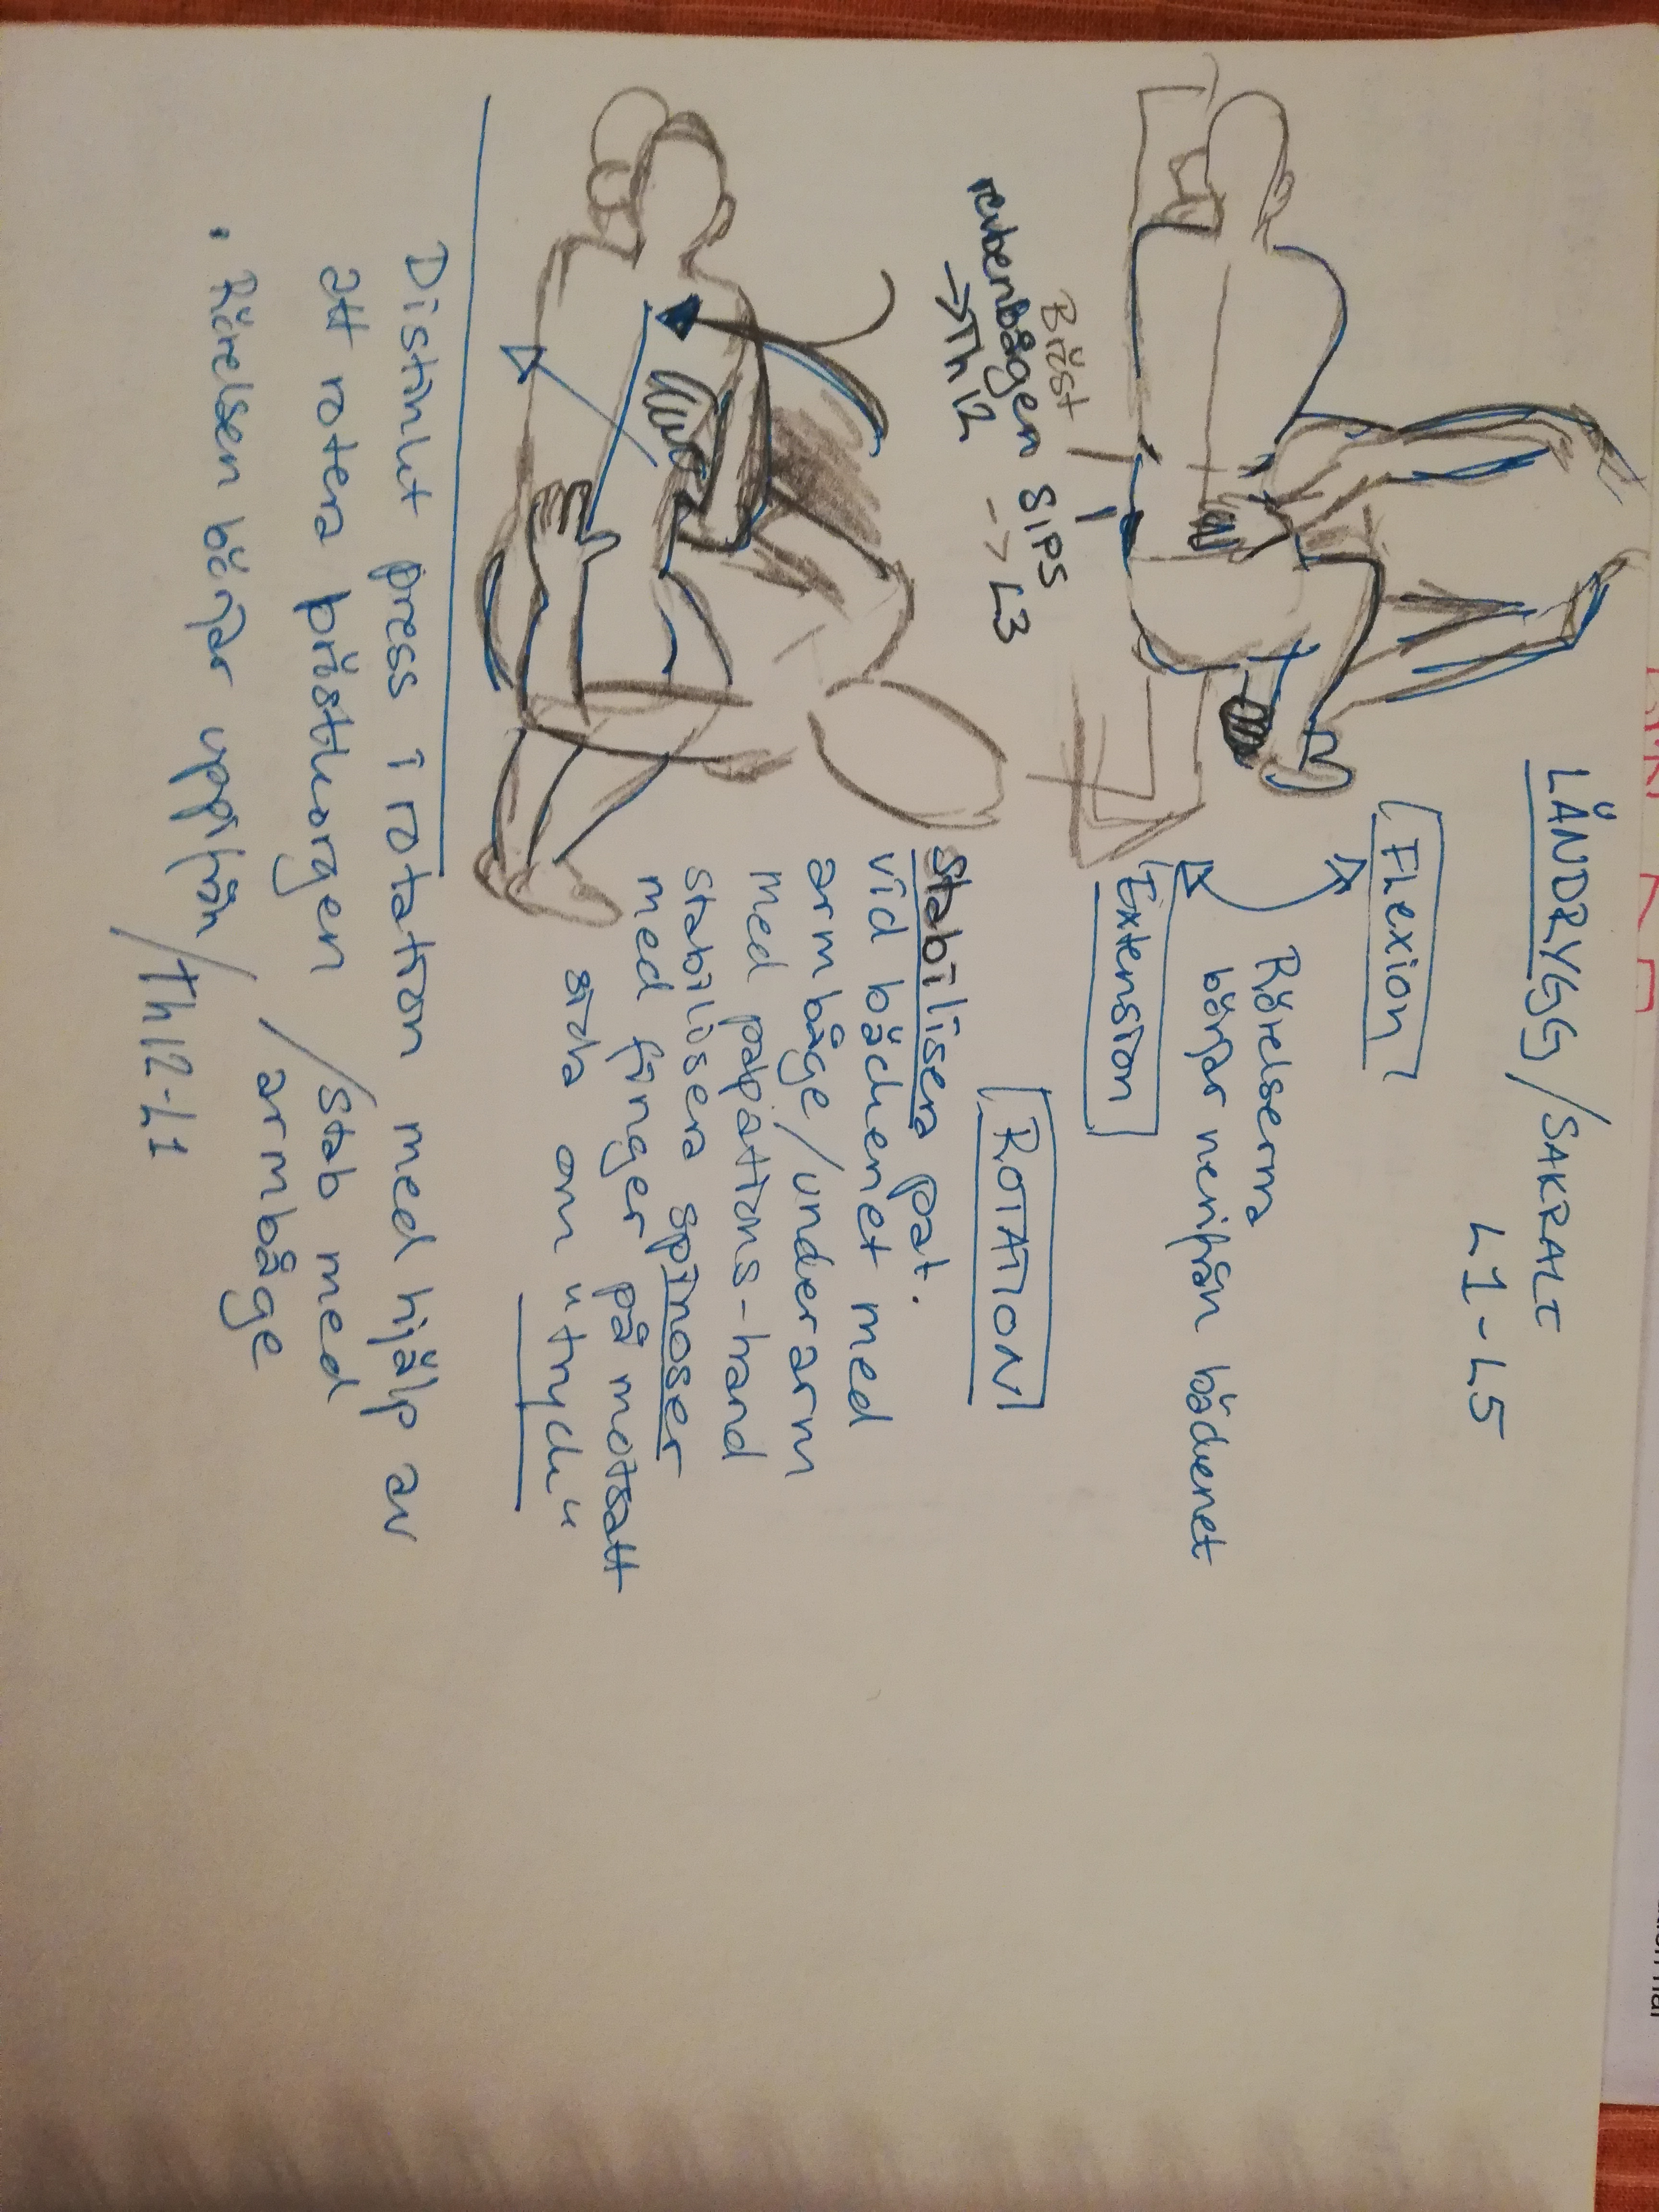 LÄNDRYGG/SAKRALT
L1-L5
Flexion
Rörelserna
börjar nerifrån bäckenet
Extension
Bröst
revbenbågen SIPS
→Th12 -> L3
ROTATION
Stabilisera pat.
vid bäckenet med
armbåge/underarm
med palpations-hand
stabilisera spinoser
med finger på motsatt
sida om "tryck"
Distinkt press i rotation med hjälp av
att rotera bröstkorgen /stab med
armbåge
• Rörelsen börjar uppifrån /Th12-L1